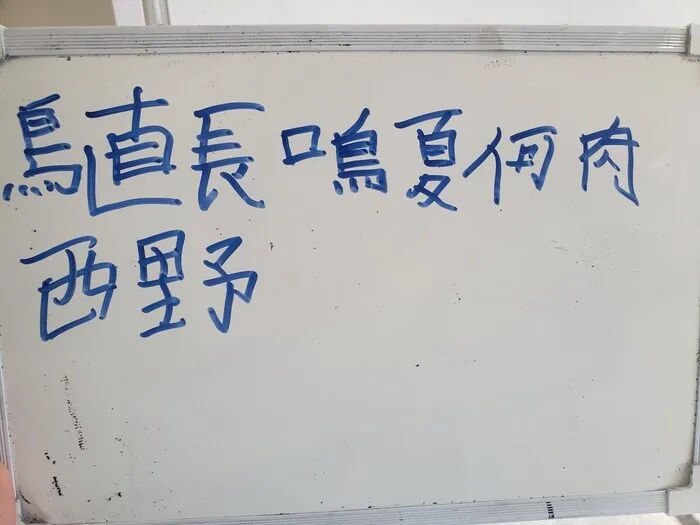 鳥直長鳴夏何肉
西野